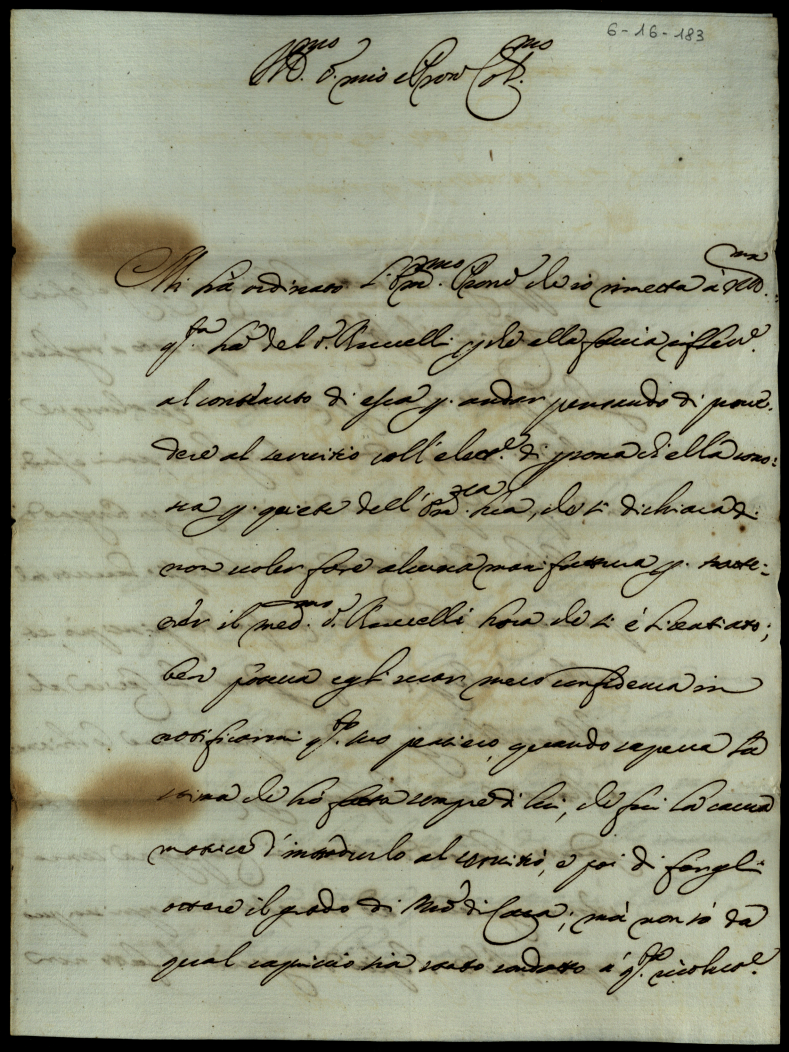 6-16-183
Ill.mo S. mio e Pron Col.mo
Mi hà ordinato l'Em.mo Prone che io rimetta à VS Ill.ma
q.sta lra del S. Ruccelli perche ella faccia rifless.e
al contenuto di essa p. andar pensando di prove-
dere al servitio coll'elett.e di persona ch'ella cono-
sca p. quiete dell'Em.za Sua, che si dichiara di
non voler fare alcuna manifattura p. tratte-
ner il med.mo S. Ruccelli hora che si è licentiato;
ben poteva egli usar meco confidenza in
notificarmi q.sto suo pensiero, quando sapeva la
stima che hò fatta sempre di lui, che fui la causa
motrice d'introdurlo al servitio, e poi di fargli
ottere il grado di Mro di Casa; mà non sò da
qual capriccio sia stato condotto à q.sta risolut.e